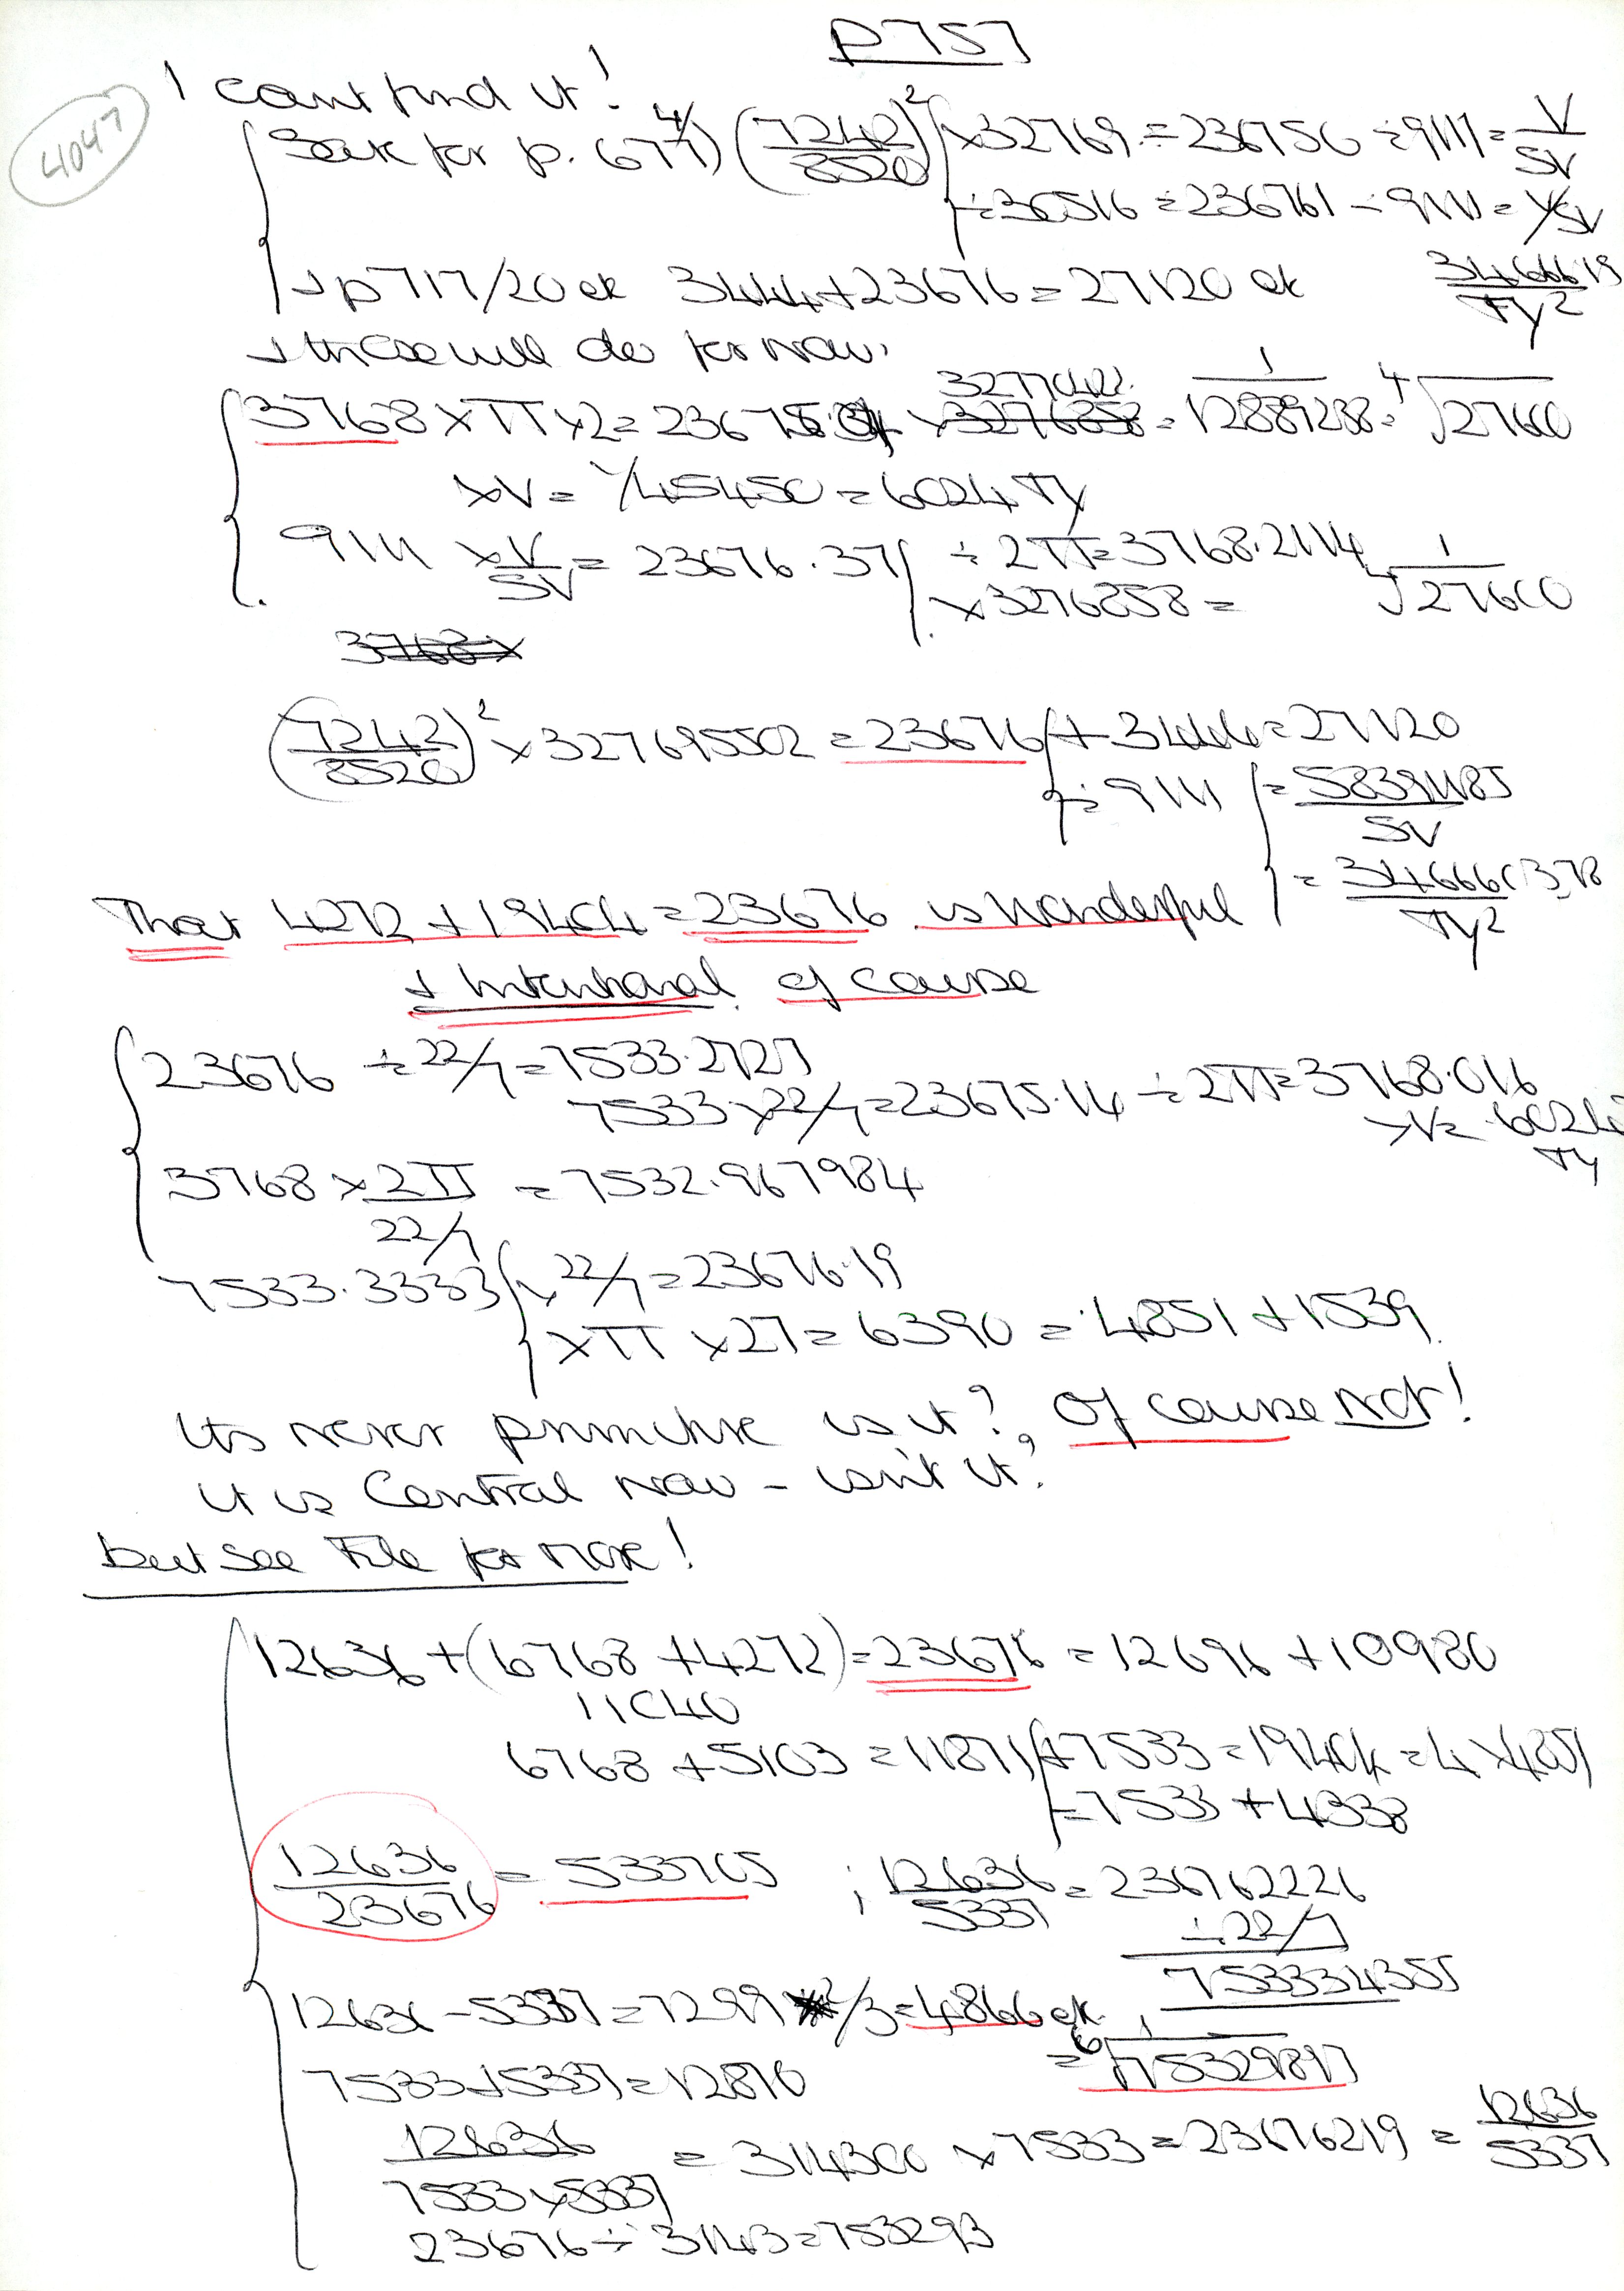 p 757
4047
I cant find it!
Seek for p. 677 4/) (7242/8520)² × 32769 = 236756 ÷ 9111 = V/SV
÷ 36516 = 236761 ÷ 9111 = Y/SV
+ p 717/20 ek 3444 + 23676 = 27120 ek 34666.19/Ty²
+ these will do for now.
3277042
3768 × π × 2 = 23675.04 × 3276858 = 1/12889288 = ⁴√27600
× V = 1/45450 = 6024 Ty
9111 × V/SV = 23676.37 ÷ 2π = 3768.2114
× 3276858 = 1/⁴√27600
3768 ×
(7242/8520)² × 327695502 = 23676 + 3444 = 27120
÷ 9111 = 58391185/SV
= 346660378/Ty²
That 4272 + 19404 = 23676 is Wonderful
+ Intentional of course
23676 ÷ 22/7 = 7533.2727
7533 × 22/7 = 23675.14 ÷ 2π = 3768.016
× V = .6024/Ty
3768 × 2π/22/7 = 7532.967984
7533.3333 × 22/7 = 23676.19
× π × 27 = 6390 = 4851 + 1539
Its never primitive is it? Of course not!
it is Central now - isn't it?
but see File for more!
12636 + (6768 + 4272) = 23676 = 12696 + 10980
11040
6768 + 5103 = 11871 + 7533 = 19404 = 4 × 4851
= 7533 + 4338
12636/23676 = 533705 ; 12636/5337 = 236762226
÷ 22/7
753334355
12636 - 5337 = 7299 2/3 = 4866 ek
= ⁶√1/75329897
7533 + 5337 = 12870
12636/7533 × 5337 = 314300 × 7533 = 23676219 = 12636/5337
23676 ÷ 3143 = 753293